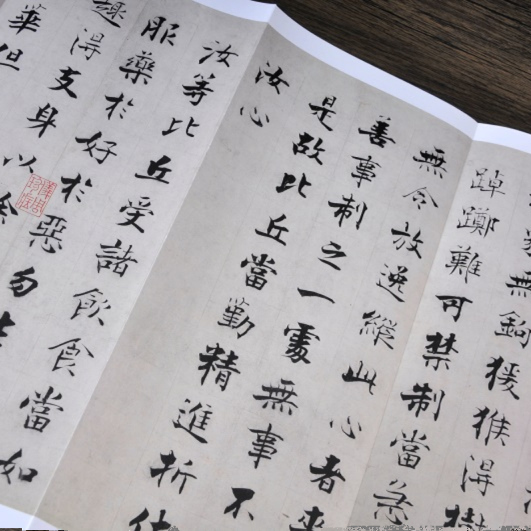 無鉤猨猴得樹
踔躑難可禁制當急
無令放逸縱此心者喪
善事制之一處無事不
是故比丘當勤精進折伏
汝心
汝等比丘受諸飲食當如
服藥於好於惡勿生
趣得支身以除
華但